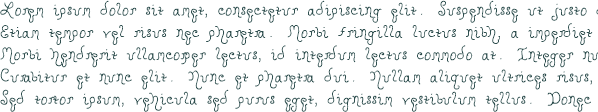 Lorem ipsum dolor sit amet, consectetur adipiscing elit. Suspendisse ut justo
Etiam tempor vel risus nec pharetra. Morbi fringilla luctus nibh, a imperdiet
Morbi hendrerit ullamcorper lectus, id interdum lectus commodo at. Integer nu
Curabitur et nunc elit. Nunc et pharetra dui. Nullam aliquet ultrices risus,
Sed tortor ipsum, vehicula sed purus eget, dignissim vestibulum tellus. Donec